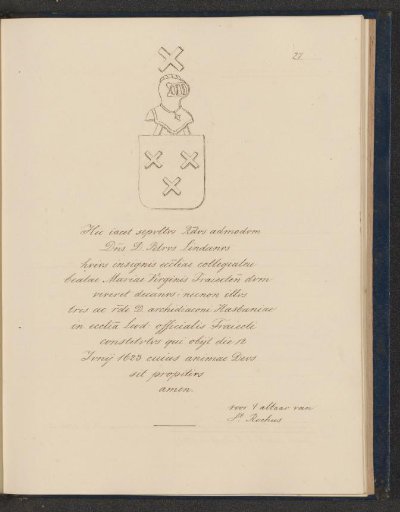 27.
Hic iacet sepvltvs Rdvs admodvm
Dñs D. Petrvs Lindanvs
hvivs insignis eccliae collegiatae
beatae Mariae Virginis Traiecten dvm
viveret decanvs. necnon
D. archidiaconi Hasbaniae
in ecclīa Leod officialis Traiecti
constitvtvs qui obijt die 12
Ivnij 1633 cuius animae Devs
sit propitivs
amen.
voor 't altaar van
St. Rochus